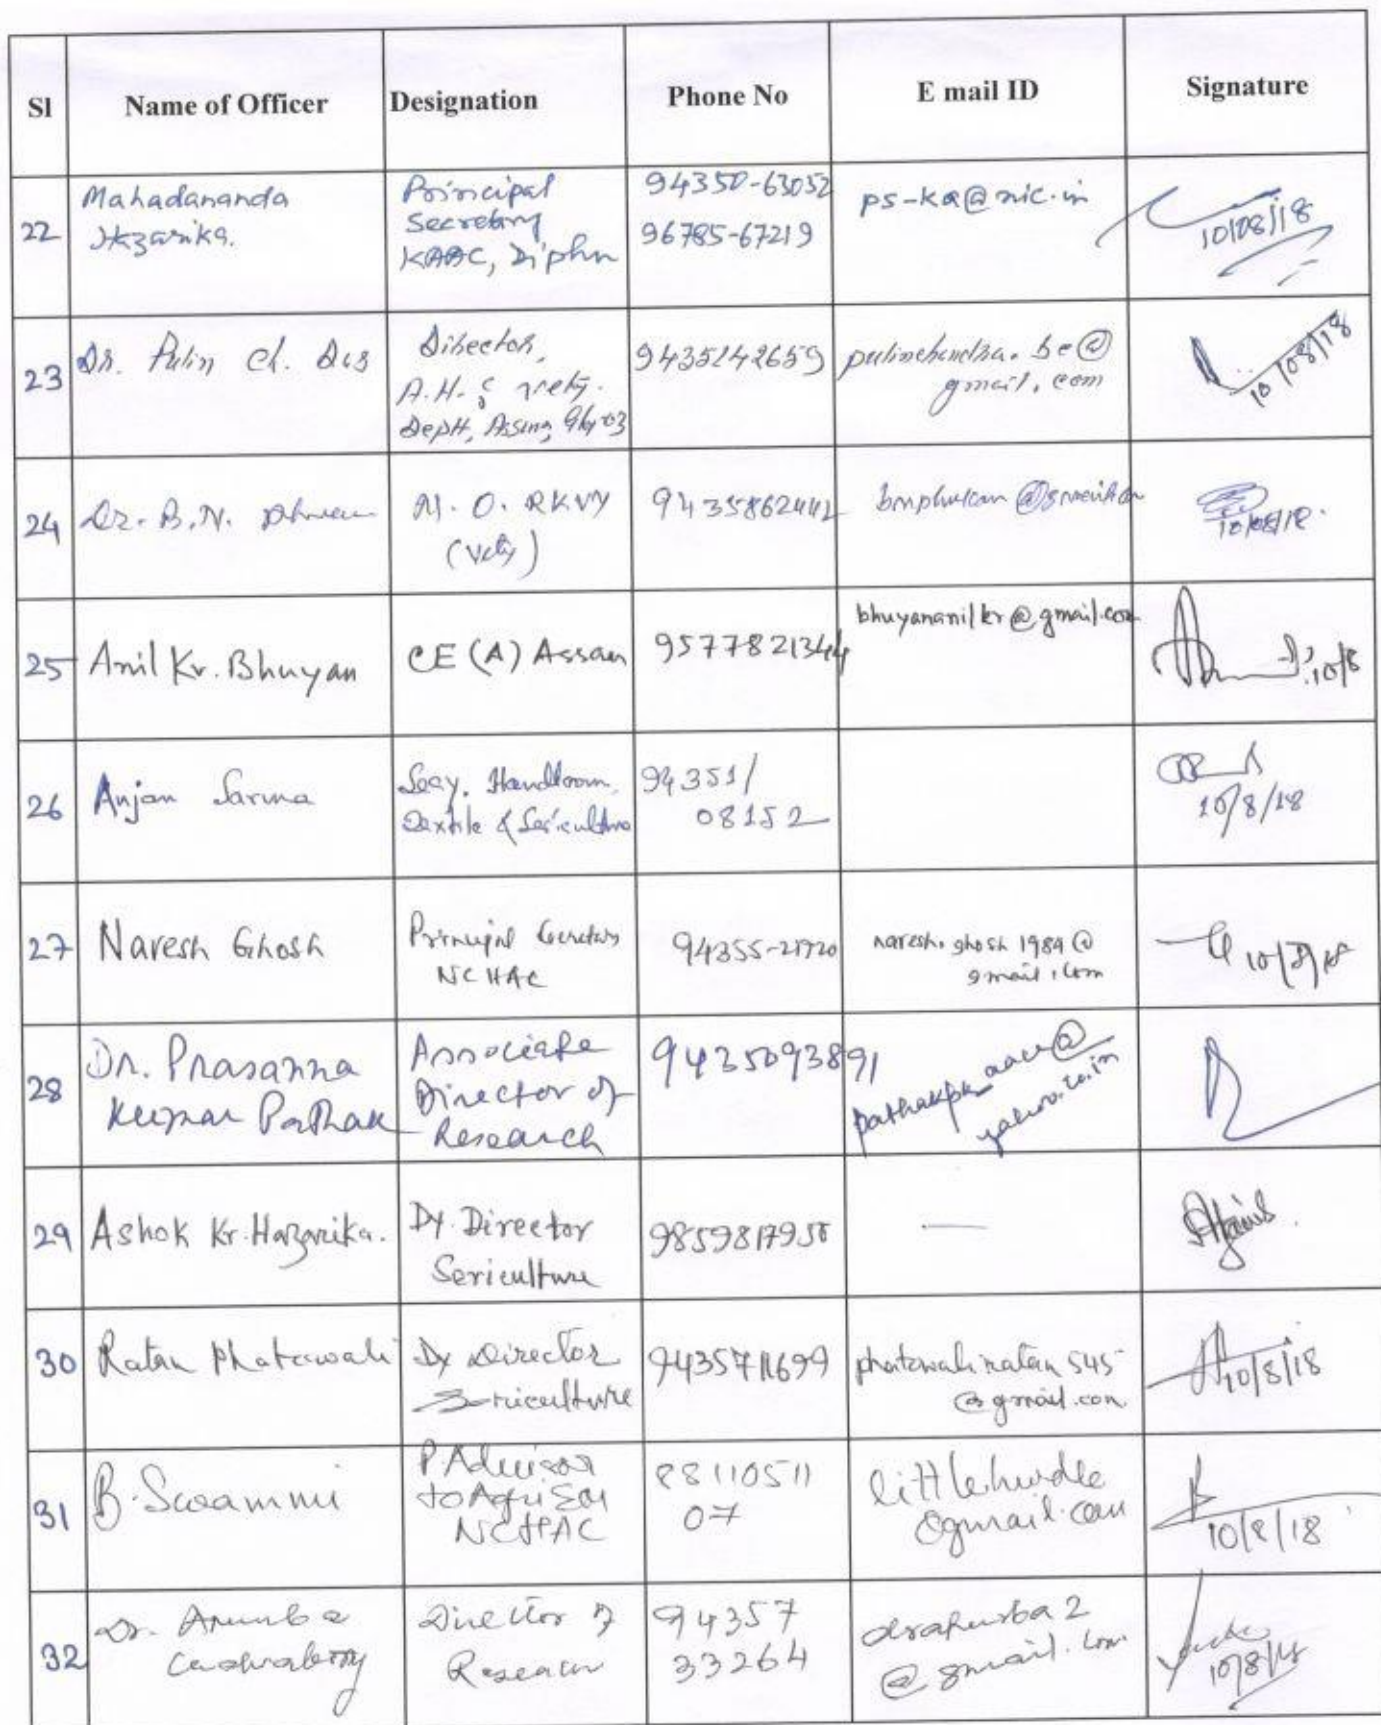 Sl Name of Officer Designation Phone No E mail ID Signature
22 Mahadananda Hazarika. Principal Secretary KAAC, Diphu 94350-63052 96785-67219 ps-ka@nic.in 10/08/18
23 Dr. Pulin Ch. Das Director, A.H. & Vety. Deptt, Assam, 9435142659 gmail.com 10/08/18
24 Dr. B.N. N.O. RKVY (Vety) 94358 10/08/18.
25 Anil Kr. Bhuyan CE (A) Assam 9577821344 bhuyananilkr@gmail.com 10/8
26 Anjan Sarma Secy. Handloom, Textile & Sericulture 94351/ 08152 10/8/18
27 Naresh Ghosh Principal Secretary NCHAC 94355-21720 naresh.ghosh1984@ gmail.com 10/8/18
28 Dr. Prasanna Kumar Pathak Associate Director of Research 9435093891 pathakpk_aau@ yahoo.co.in
29 Ashok Kr. Hazarika. Dy. Director Sericulture 98598 —
30 Ratan Phatowali Dy Director Sericulture 9435711699 phatowaliratan545 @gmail.com 10/8/18
31 B. Swammi P Advisor to Agri NCHAC 88110511 07 littlehurdle @gmail.com 10/8/18
32 Dr. Director of Research 94357 33264 drapurba2 @gmail.com 10/8/18